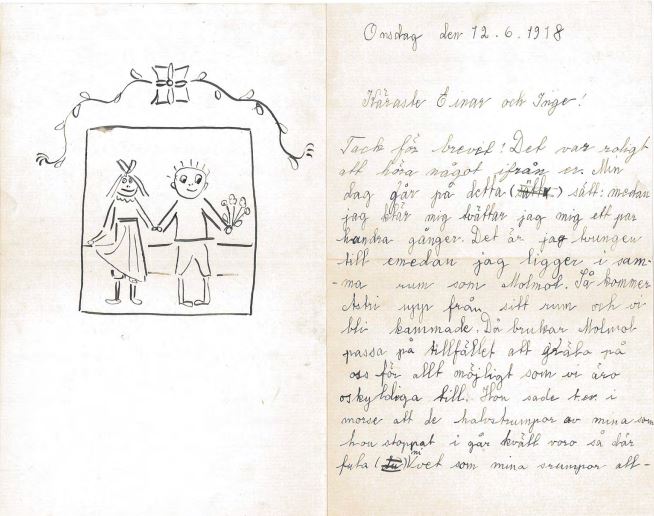 Onsdag den 12.6.1918
Käraste Einar och Inge!
Tack för brevet! Det var roligt
att höra något ifrån er. Min
dag går på detta () sätt: medan
jag klär mig tvättar jag mig ett par
hundra gånger. Det är jag tvungen
till emedan jag ligger i sam-
ma rum som Molmol. Så kommer
Asti upp från sitt rum och vi
bli kammade. Då brukar Molmol
passa på tillfället att gräla på
oss för allt möjligt som vi äro
oskyldiga till. Hon sade t.ex. i
morse att de halvstrumpor av mina som
hon stoppat i går kväll voro så där
fula () vet som mina srumpor all-